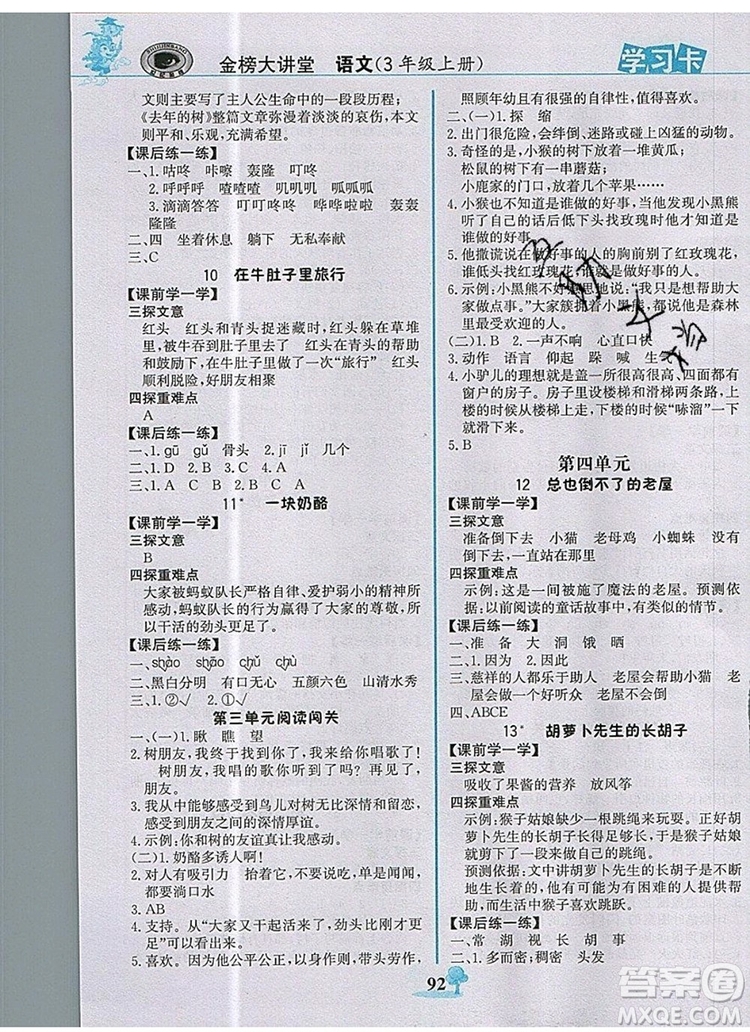 金榜大讲堂 语文(3年级上册)
学习卡
文则主要写了主人公生命中的一段段历程;
《去年的树》整篇文章弥漫着淡淡的哀伤,本文
则平和、乐观、充满希望。
【课后练一练】
一、1.咕咚 咔嚓 轰隆 叮咚
2.呼呼呼 喳喳喳 叽叽叽 叮叮叮
3.滴滴答答 叮叮咚咚 哗哗啦啦 轰轰
隆隆
二、四 坐着休息 躺下 无忧无虑
三、C
10 在牛肚子里旅行
【课前学一学】
三探文意
红头 红头和青头捉迷藏时,红头躲在草堆
里,被牛吞到肚子里 红头在青头的帮助
和鼓励下,在牛肚子里做了一次“旅行” 红头
顺利脱险,好朋友相聚
四探重难点
A
【课后练一练】
一、1.gū gǔ 骨头 2.jī jǐ 几个
二、1.D 2.C 3.A 4.B
三、1.C B D A
11* 一块奶酪
【课前学一学】
三探文意
B
四探重难点
大家被蚂蚁队长严格自律、爱护弱小的精神所
感动,蚂蚁队长的行为赢得了大家的尊敬,所
以干活的劲头更足了。
【课后练一练】
一、shào shāo chù chǔ
二、黑白分明 有口无心 五颜六色 山清水秀
三、1.②√ 2.①√
第三单元阅读闯关
一、(一)1.瞅 瞧 望
2.树朋友,树朋友,我终于找到你了。树朋
友,我来唱歌给你听。树朋友,再见了,树朋
友,我唱的歌你听到了吗?
3.我从中感受到鸟儿对树朋友的深情和留恋,
它们之间有着比大海还深的情谊。
4.示例:你和树的友谊真让我感动。
(二)1.奶酪多诱人啊!
2.对人有吸引力 抬着它,不要动它,不要吃
它,都要淌口水
3.AB
4.支持。从“大家又干起活来了,劲头比刚才
更足”可以看出这一做法收到了好效果。
5.喜欢。因为它公正、以身作则,带头劳作,
照顾年幼且有很强的自律性,值得喜欢。
二、(一)1.探 缩
2.出门很危险,会摔倒、迷路或碰上凶猛的动物。
3.奇怪的是,小猴的门口放着一堆黄瓜;
松鼠的门口放着一串蘑菇;
小鹿家的门口,放着几个苹果……
4.小猴也以为是小黑熊做的,当他发现小黑熊
听了自己的话后低下头去找玫瑰时他才知道是
谁做的好事
5.他撒谎说做好事的人的胸前别有红玫瑰花,
6.示例:小黑熊不好意思地说:“我只是想帮助大
家做点事。”大家簇拥着小黑熊,都说他是森林
里最受欢迎的人。
(二)1.A 2.一声不响 心直口快
3.动作 语言 仰起 跺 喊 生
4.小驴儿的理想就是盖一所很高很高、四面都有
窗户的房子。房子里分楼梯和滑梯两条路,上
楼的时候从楼梯上去,下楼的时候“哧溜”一
下从滑梯滑下来。
5.B
第四单元
12 总也倒不了的老屋
【课前学一学】
三探文意
准备倒下去 小猫 老母鸡 小蜘蛛 没有
倒下去,一直站在那儿
四探重难点
示例:这是一间被施了魔法的老屋。预测依
据:以前阅读的童话故事中,有类似的情节。
【课后练一练】
一、准 备 大 洞 饿 晒
二、1.0 2.0
三、慈祥的人总是乐于助人 老屋帮助了小猫 老
屋帮助了老母鸡 老屋帮助了小蜘蛛 老
屋是一个好听众 大家都喜欢老屋
四、ABCE
13* 胡萝卜先生的长胡子
【课前学一学】
三探文意
吸收了果酱的营养 放风筝
四探重难点
示例:猴子姑娘缺少一根跳绳来玩耍。正好胡
萝卜先生的长胡子在风中飘动着,猴子姑娘
就剪了一段胡子来当自己的跳绳。
预测依据:文中讲胡萝卜先生的长胡子是不断
地生长的,他就可能对有困难的人提供帮
助,且生活中猴子喜欢跳跃。
【课后练一练】
一、常 湖 视 长 胡 事
二、1.因……所以……;稠密 头发
92
答案圈
MXQE.COM